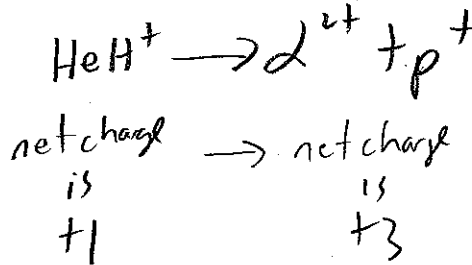 HeH⁺ → α²⁺ + p⁺
net charge → net charge
is is
+1 +3